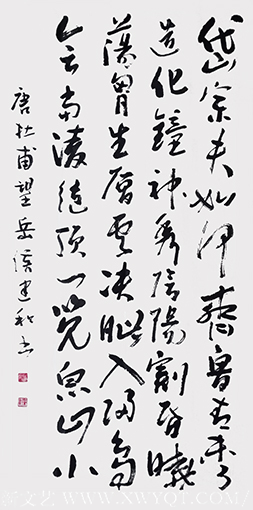 岱宗夫如何齊魯青未了
造化鐘神秀陰陽割昏曉
蕩胸生層雲決眦入歸鳥
會當凌絕頂一覽眾山小
唐杜甫望岳 建秋書
文艺 WWW.XWYQT.COM